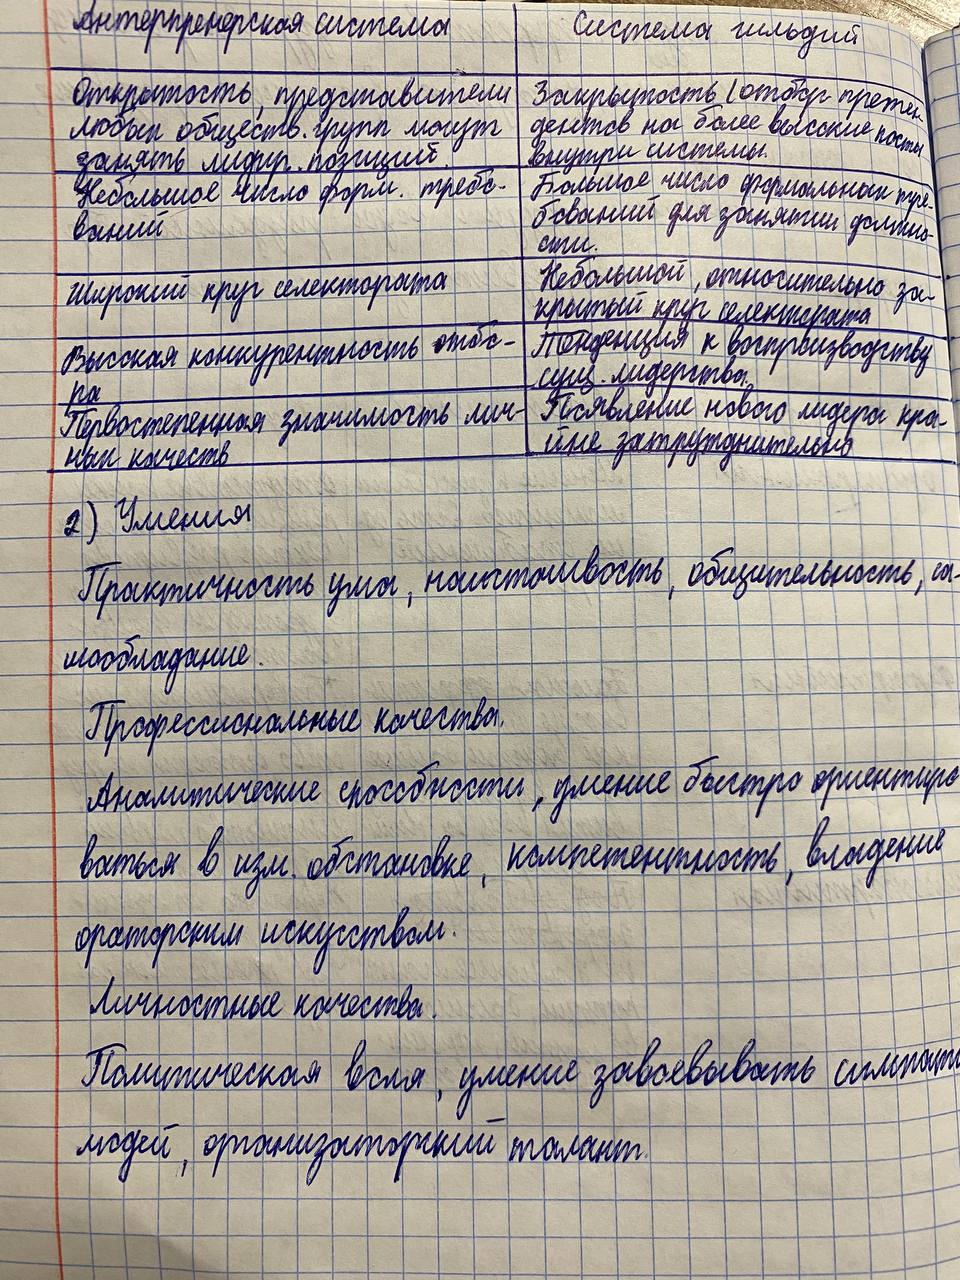 Антерпренерская система
Система гильдий
Открытость, представители
любых обществ. групп могут
занять лидир. позиций.
Закрытость (отбор претен-
дентов на более высокие посты
внутри системы.
Небольшое число форм. требо-
ваний
Большое число формальных тре-
бований для занятии должно-
сти.
Широкий круг селектората
Небольшой, относительно за-
крытый круг селектората
Высокая конкурентность отбо-
ра
Тенденция к воспроизводству
сущ. лидерства
Первостепенная значимость лич-
ных качеств
Появление нового лидера кра-
йне затруднительно
2) Умения
Практичность ума, настойчивость, общительность, са-
мообладание.
Профессиональные качества.
Аналитические способности, умение быстро ориентиро
ваться в изм. обстановке, компетентность, владение
ораторским искусством.
Личностные качества.
Политическая воля, умение завоевывать симпати
людей, организаторский талант.